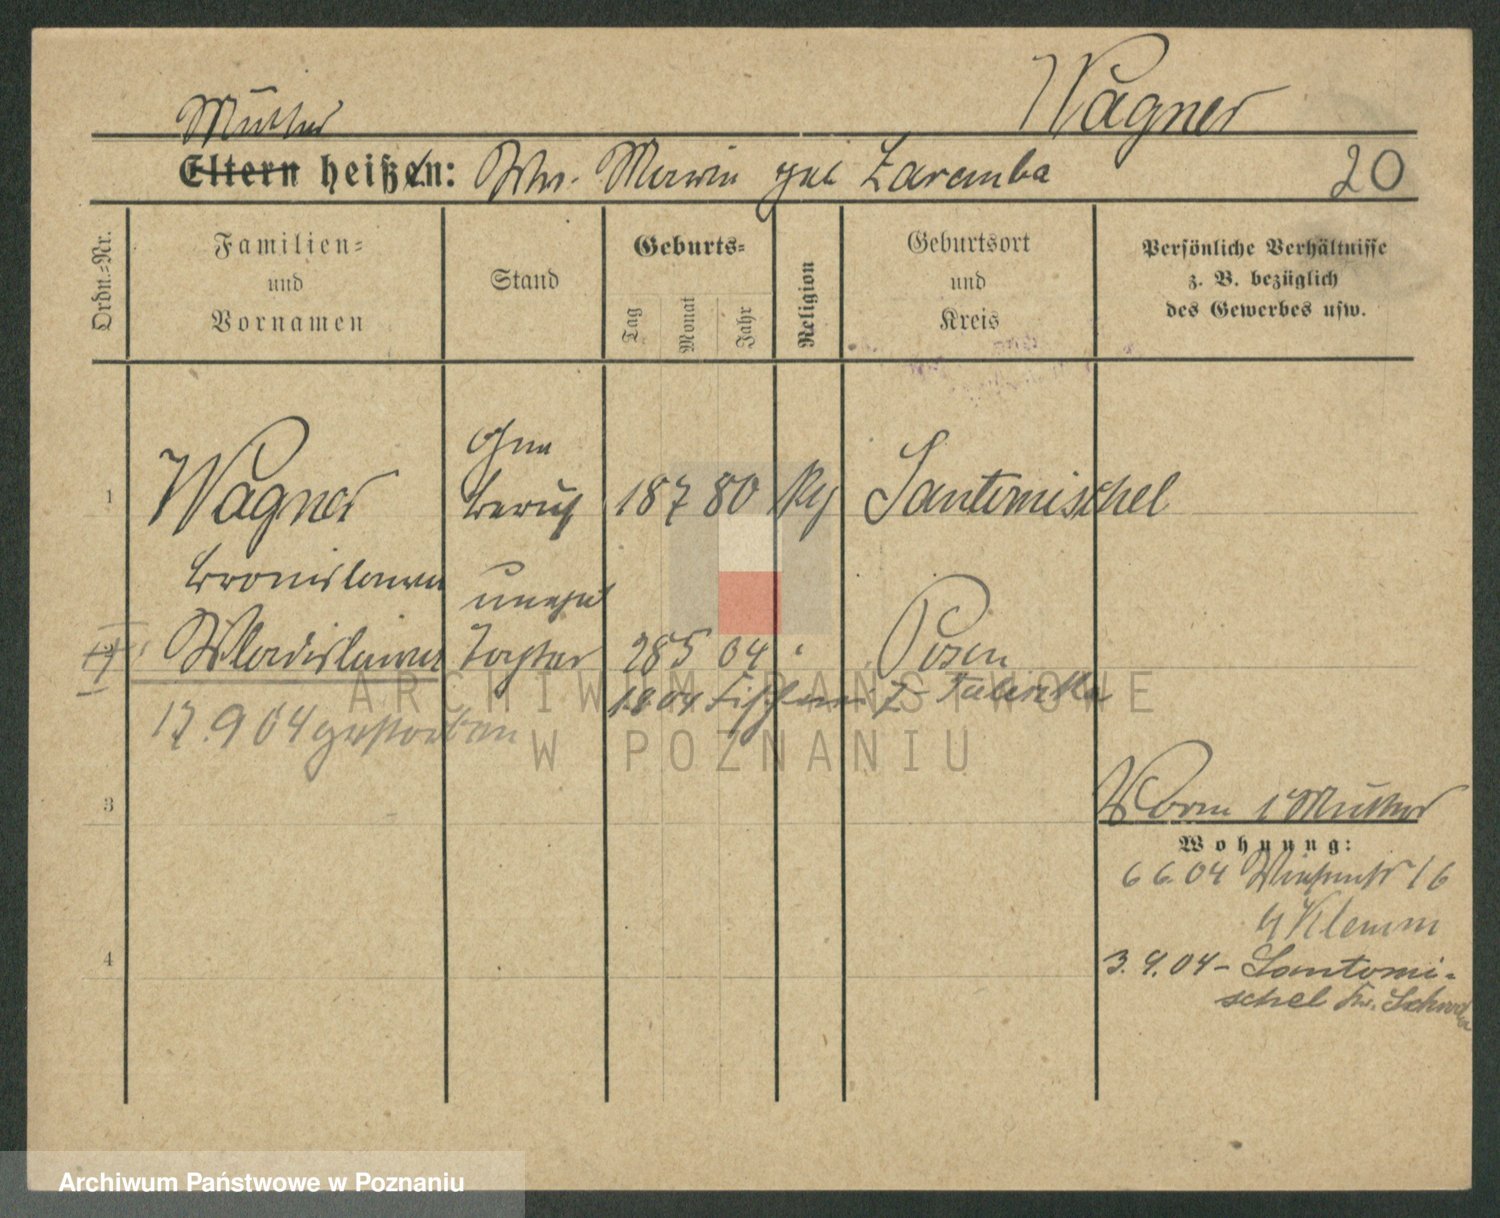 Wagner
Mutter
Eltern heißen: Ww. Maria geb Zaremba 20
Ordn.-Nr.
Familien-
und
Vornamen
Stand
Geburts-
Tag
Monat
Jahr
Religion
Geburtsort
und
Kreis
Persönliche Verhältnisse
z. B. bezüglich
des Gewerbes usw.
ohne
1 Wagner Beruf 18 7 80 Santomischel
Bronislawa unehel
Wladislawa Tochter 28 5 04 " Posen
1.8.04
17.9 04 gestorben
3
Mutter
Wohnung:
6 6.04 16
Klemm
4
3.9.04- Santomi-
schel Kr. Schroda
ARCHIWUM PAŃSTWOWE
W POZNANIU
Archiwum Państwowe w Poznaniu